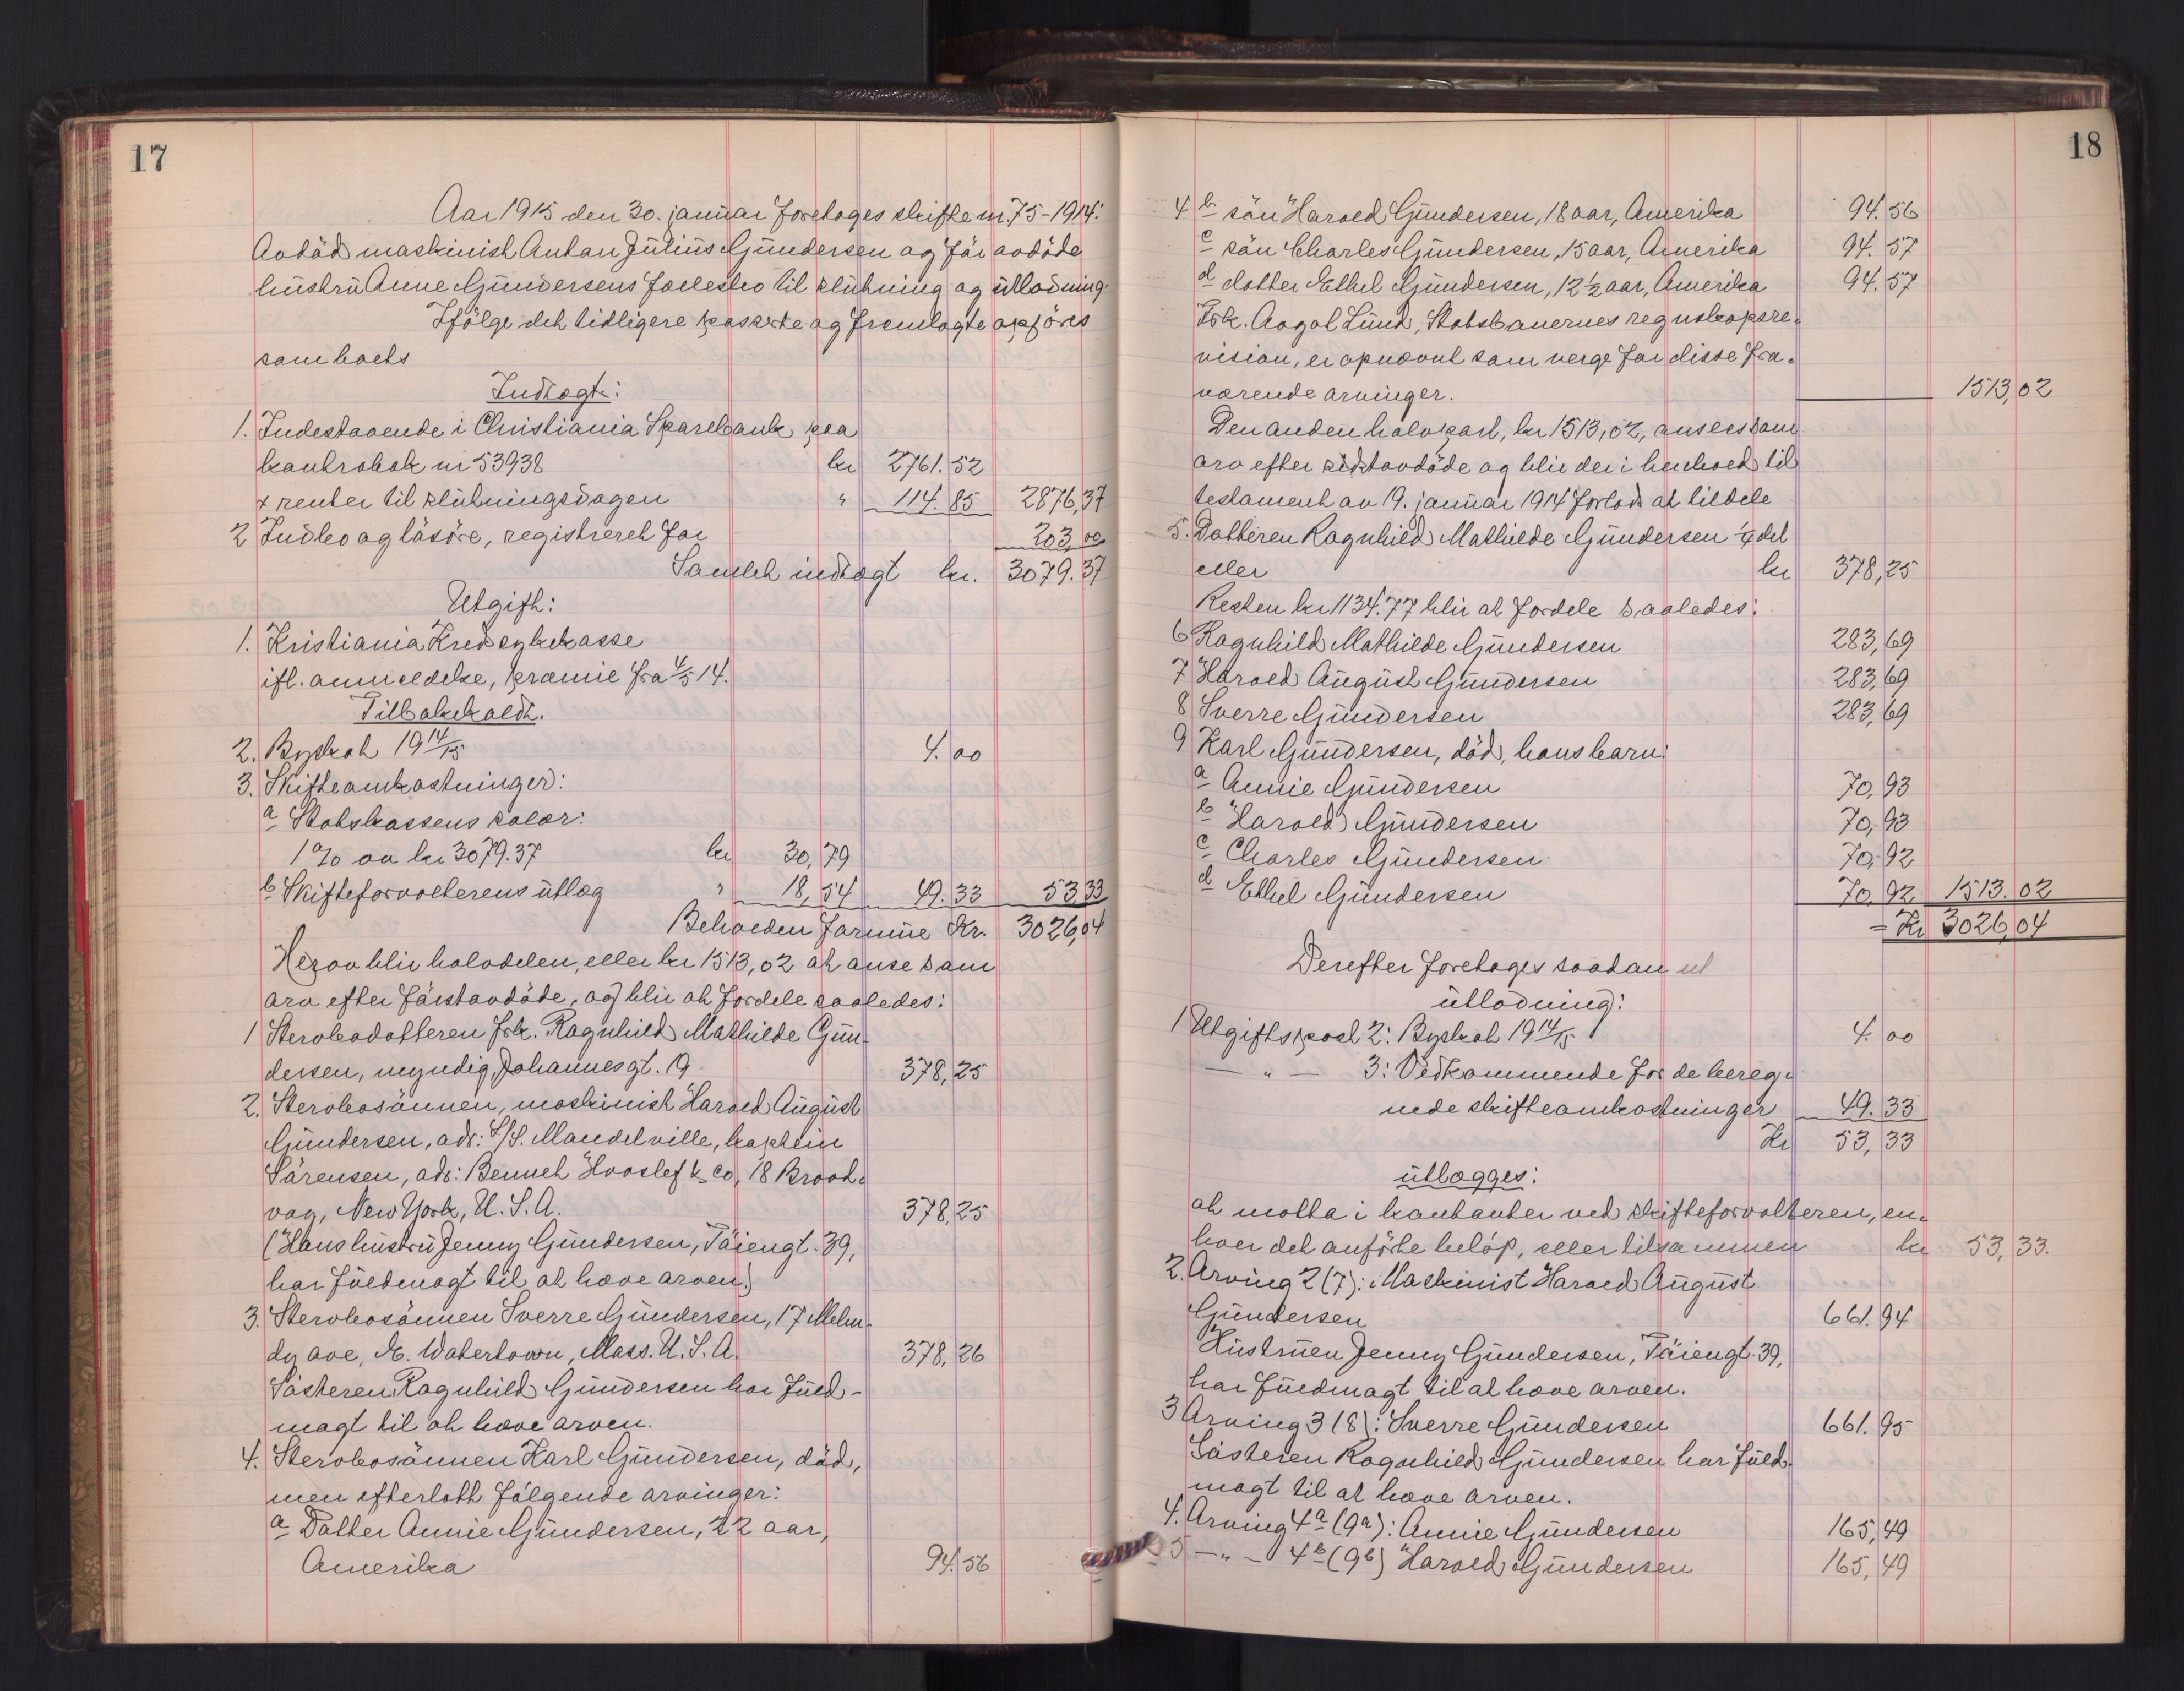 17
Aar 1915 den 30. januar foretoges skifte nr. 75-1914:
Avdød maskinist Anton Julius Gundersen og før avdøde
hustru Anne Gundersens fællesbo til slutning og utlodning.
Ifølge det tidligere passerte og fremlagte opføres
som boets
Indtægt:
1. Indestaaende i Christiania Sparebank paa
kontrabok nr 53938 kr 2761.52
+ renter til slutningsdagen " 114.85 2876,37
2 Indbo og løsøre, registreret for 203,00
Samlet indtægt kr. 3079.37
Utgift:
1. Kristiania Kredsykekasse
ifl. anmeldelse, præmie fra 4/5 14.
Tilbakekaldt.
2. Byskat 19 14/15 4.00
3. Skifteomkostninger:
a Statskassens salær:
1% av kr 3079.37 kr 30,79
b Skifteforvalterens utlæg " 18,54 49.33 53,33
Beholden formue Kr. 3026,04
Herav blir halvdelen, eller kr 1513,02 at anse som
arv efter førstavdøde, og blir at fordele saaledes:
1 Stervbodatteren frk. Ragnhild Mathilde Gun-
dersen, myndig, Johannesgt. 19 378,25
2. Stervbosønnen, maskinist Harald August
Gundersen, adr: S/S. Mandelville, kaptein
Sørensen, adr: Bennet Hvoslef & Co, 18 Broad-
way, New York, U. S. A. 378,25
(Hans hustru Jenny Gundersen, Tøiengt. 39,
har fuldmagt til at hæve arven)
3. Stervbosønnen Sverre Gundersen, 17 Meln-
dy ave, E. Watertown, Mass. U. S. A. 378,26
Søsteren Ragnhild Gundersen har fuld-
magt til at hæve arven.
4. Stervbosønnen Karl Gundersen, død,
men efterlatt følgende arvinger:
a Datter Annie Gundersen, 22 aar,
Amerika 94.56
18
4 b søn Harald Gundersen, 18 aar, Amerika 94.56
c søn Charles Gundersen, 15 aar, Amerika 94.57
d datter Ethel Gundersen, 12½ aar, Amerika 94.57
Frk. Aagot Lund, Statsbanernes regnskapsre-
vision, er opnævnt som verge for disse fra-
værende arvinger. 1513,02
Den anden halvpart, kr 1513,02, ansees som
arv efter sidstavdøde og blir der i henhold til
testament av 19. januar 1914 forlods at tildele
5. Datteren Ragnhild Mathilde Gundersen ¼ del
eller kr 378,25
Resten kr 1134.77 blir at fordele saaledes:
6 Ragnhild Mathilde Gundersen 283,69
7 Harald August Gundersen 283,69
8 Sverre Gundersen 283,69
9 Karl Gundersen, død, hans barn:
a Annie Gundersen 70,93
b Harald Gundersen 70,93
c Charles Gundersen 70,92
d Ethel Gundersen 70,92 1513.02
= Kr 3026,04
Derefter foretoges saadan ut
utlodning:
1 Utgiftspost 2: Byskat 19 14/15 4.00
— " — 3: Vedkommende for de bereg-
nede skifteomkostninger 49.33
Kr 53,33
utlægges:
at motta i kontanter ved skifteforvalteren, en-
hver det anførte beløp, eller tilsammen kr 53,33.
2. Arving 2 (7): Maskinist Harald August
Gundersen 661.94
Hustruen Jenny Gundersen, Tøiengt. 39,
har fuldmagt til at hæve arven.
3 Arving 3 (8): Sverre Gundersen 661.95
Søsteren Ragnhild Gundersen har fuld-
magt til at hæve arven.
4. Arving 4a (9a): Annie Gundersen 165,49
5 — " — 4b (9b) Harald Gundersen 165,49